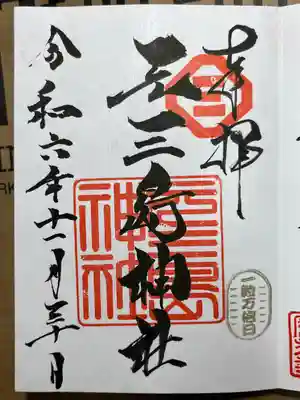 奉拝
元三島神社
令和六年十一月三十日
元三島
神社
一粒万倍日